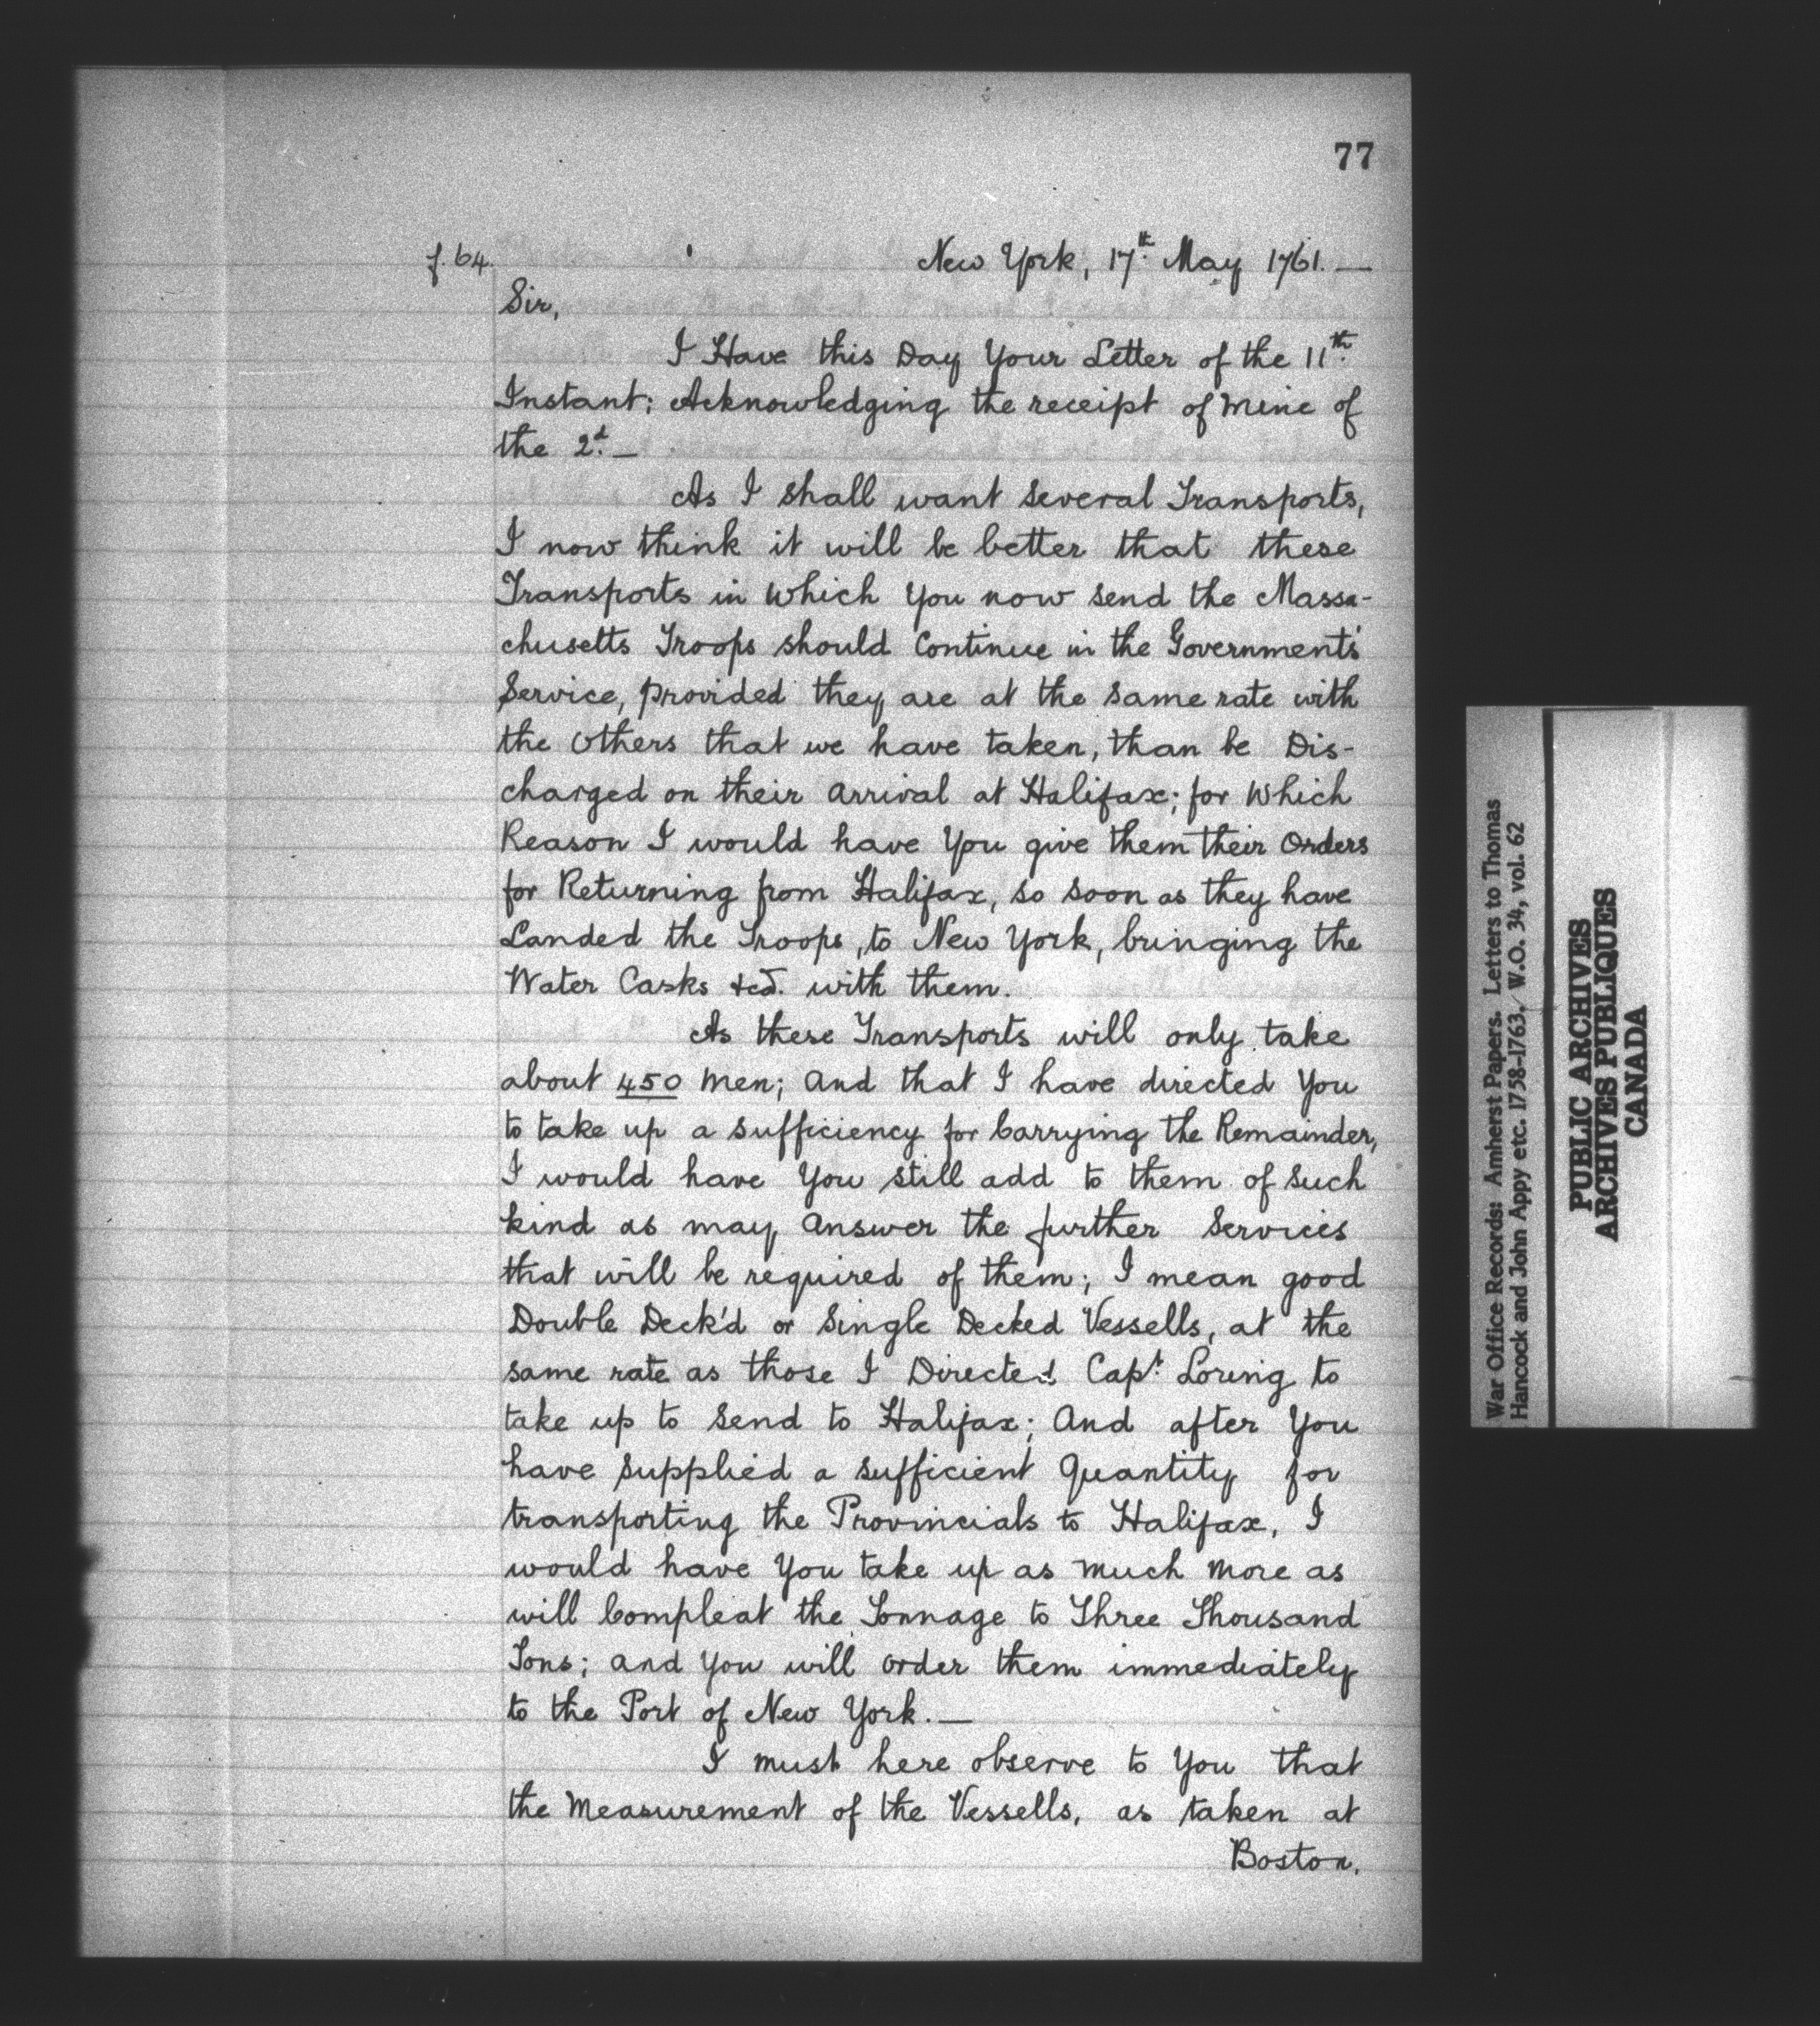 77
f. 64.
New York, 17th. May 1761. —
Sir,
I Have this Day Your Letter of the 11th.
Instant; Acknowledging the receipt of mine of
the 2d. —
As I shall want Several Transports,
I now think it will be better that these
Transports in Which You now send the Massa-
chusetts Troops should Continue in the Governments'
Service, provided they are at the same rate with
the Others that we have taken, than be Dis-
charged on their arrival at Halifax; for Which
Reason I would have You give them their Orders
for Returning from Halifax, so soon as they have
Landed the Troops, to New York, bringing the
Water Casks &ca. with them.
As these Transports will only take
about 450 Men; and that I have directed You
to take up a sufficiency for Carrying the Remainder,
I would have You still add to them of such
kind as may Answer the further Services
that will be required of them; I mean good
Double Deck'd or Single Decked Vessells, at the
same rate as those I Directed Capt. Loring to
take up to Send to Halifax; And after You
have Supplied a sufficient Quantity for
transporting the Provincials to Halifax, I
would have You take up as much More as
will Compleat the Tonnage to Three Thousand
Tons; and You will order them immediately
to the Port of New York. —
I must here observe to You that
the Measurement of the Vessells, as taken at
Boston,
War Office Records: Amherst Papers. Letters to Thomas
Hancock and John Appy etc. 1758-1763. W.O. 34, vol. 62
PUBLIC ARCHIVES
ARCHIVES PUBLIQUES
CANADA